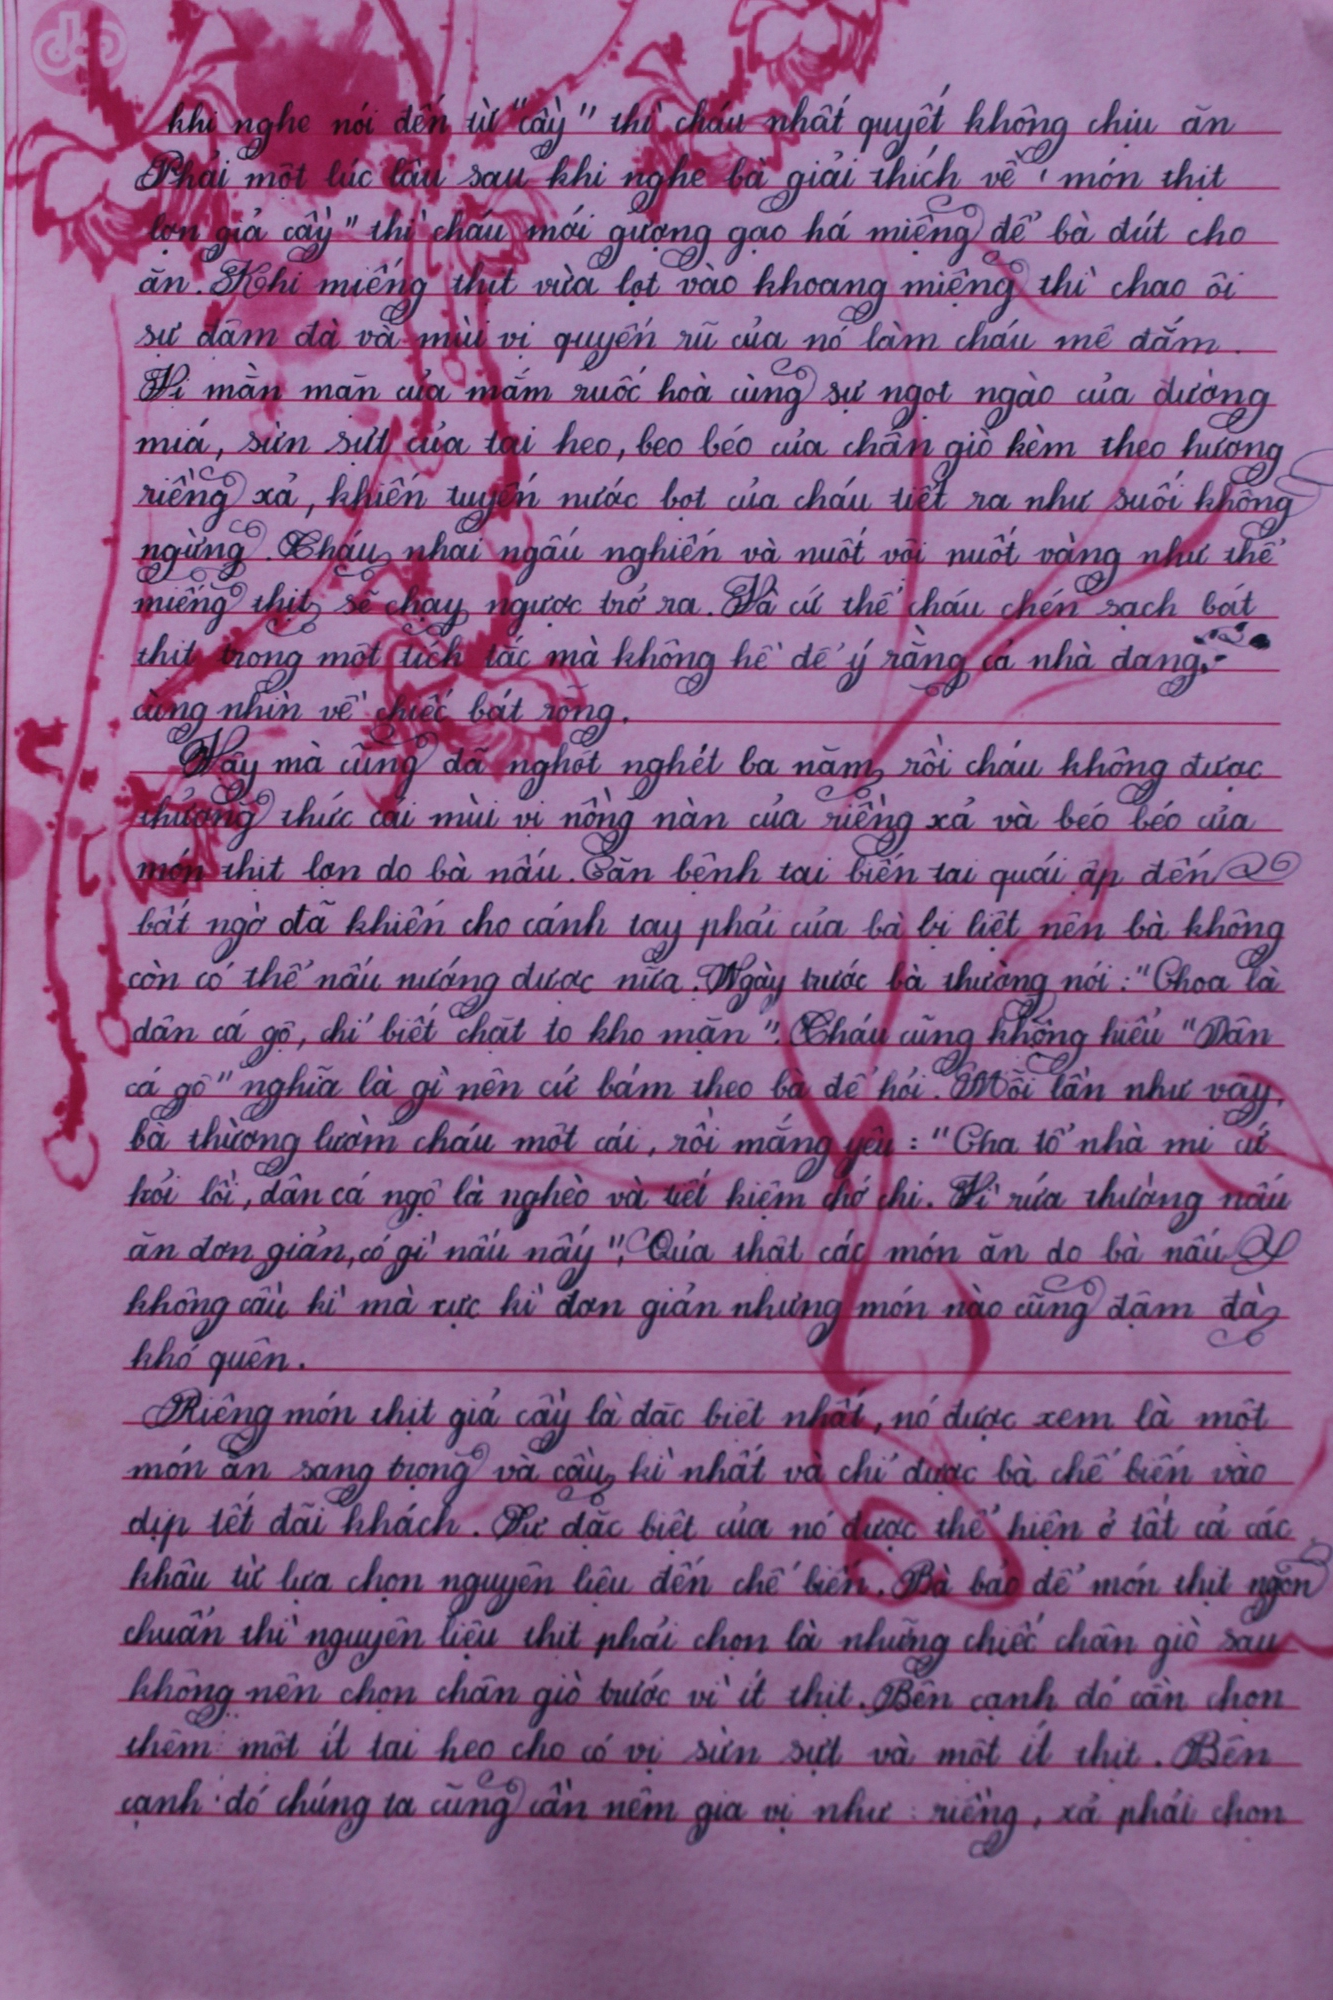 khi nghe nói đến từ "cầy" thì cháu nhất quyết không chịu ăn
Phải một lúc lâu sau khi nghe bà giải thích về "món thịt
lợn giả cầy" thì cháu mới gượng gạo há miệng để bà đút cho
ăn. Khi miếng thịt vừa lọt vào khoang miệng thì chao ôi
sự đậm đà và mùi vị quyến rũ của nó làm cháu mê đắm.
Vị mằn mặn của mắm ruốc hoà cùng sự ngọt ngào của đường
miá, sừn sựt của tai heo, beo béo của chân giò kèm theo hương
riềng xả, khiến tuyến nước bọt của cháu tiết ra như suối không
ngừng. Cháu nhai ngấu nghiến và nuốt vội nuốt vàng như thể
miếng thịt sẽ chạy ngược trở ra. Và cứ thế cháu chén sạch bát
thịt trong một tích tắc mà không hề để ý rằng cả nhà đang
cùng nhìn về chiếc bát rỗng.
Vậy mà cũng đã nghót nghét ba năm rồi cháu không được
thưởng thức cái mùi vị nồng nàn của riềng xả và béo béo của
món thịt lợn do bà nấu. Căn bệnh tai biến tai quái ập đến
bất ngờ đã khiến cho cánh tay phải của bà bị liệt nên bà không
còn có thể nấu nướng được nữa. Ngày trước bà thường nói: "Choa là
dân cá gộ, chỉ biết chặt to kho mặn". Cháu cũng không hiểu "Dân
cá gộ" nghĩa là gì nên cứ bám theo bà để hỏi. Mỗi lần như vậy,
bà thường lườm cháu một cái, rồi mắng yêu: "Cha tổ nhà mi cứ
hỏi lồi, dân cá ngộ là nghèo và tiết kiệm chớ chi. Vì rứa thường nấu
ăn đơn giản, có gì nấu nấy". Qủa thật các món ăn do bà nấu
không cầu kì mà cực kì đơn giản nhưng món nào cũng đậm đà
khó quên.
Riêng món thịt giả cầy là đặc biệt nhất, nó được xem là một
món ăn sang trọng và cầu kì nhất và chỉ được bà chế biến vào
dịp tết đãi khách. Sự đặc biệt của nó được thể hiện ở tất cả các
khâu từ lựa chọn nguyên liệu đến chế biến. Bà bảo để món thịt ngon
chuẩn thì nguyên liệu thịt phải chọn là những chiếc chân giò sau
không nên chọn chân giò trước vì ít thịt. Bên cạnh đó cần chọn
thêm một ít tai heo cho có vị sừn sựt và một ít thịt. Bên
cạnh đó chúng ta cũng cần nêm gia vị như: riềng, xả phải chọn